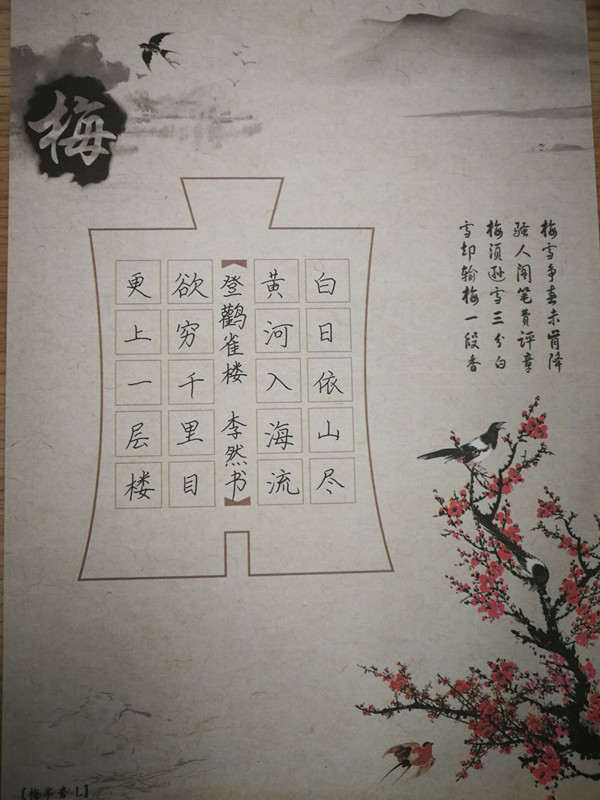 梅
白日依山尽
黄河入海流
登鹳雀楼 李然书
欲穷千里目
更上一层楼
梅雪争春未肯降
骚人阁笔费评章
梅须逊雪三分白
雪却输梅一段香